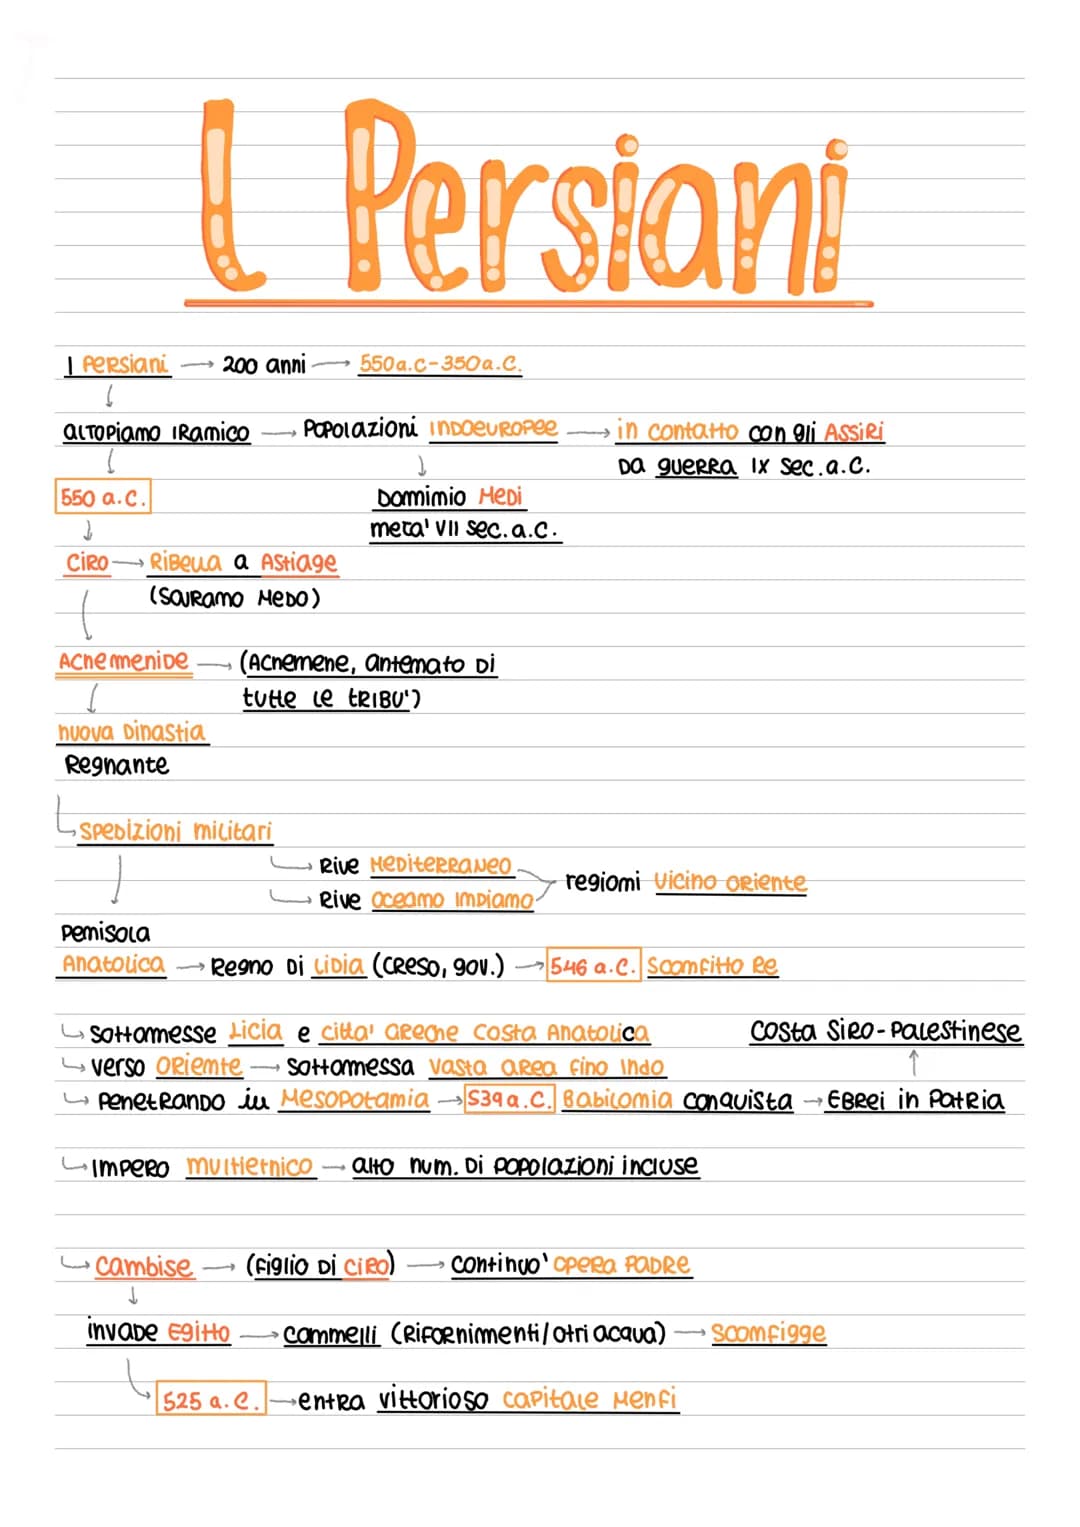 I Persiani
I Persiani → 200 anni → 550 a.C-350 a.C.
altopiamo iramico → Popolazioni indoeuropee → in contatto con gli Assiri
da guerra IX sec. a.C.
550 a.C. Dommimio Medi
meta' VII sec. a.C.
Ciro → Ribella a Astiage
(sovramo Medo)
Achemenide → (Achemene, antemato di
tutte le tribu')
nuova dinastia
Regnante
spedizioni militari
Rive Mediterraneo
regiomi Vicino Oriente
Rive oceamo Impiamo
Pemisola
Anatolica → Regno di Lidia (Creso, gov.) → 546 a.C. Scomfitto Re
sottomesse Licia e citta' greche costa Anatolica costa siro-palestinese
verso Oriemte → sottomessa vasta area fino Indo
penetrando in Mesopotamia → 539 a.C. Babilomia conquista → Ebrei in patria
impero multietnico → alto num. di popolazioni incluse
Cambise → (figlio di Ciro) → continuo' opera padre
invade Egitto → cammelli (rifornimenti/otri acqua) → scomfigge
525 a.C. → entra vittorioso capitale Menfi